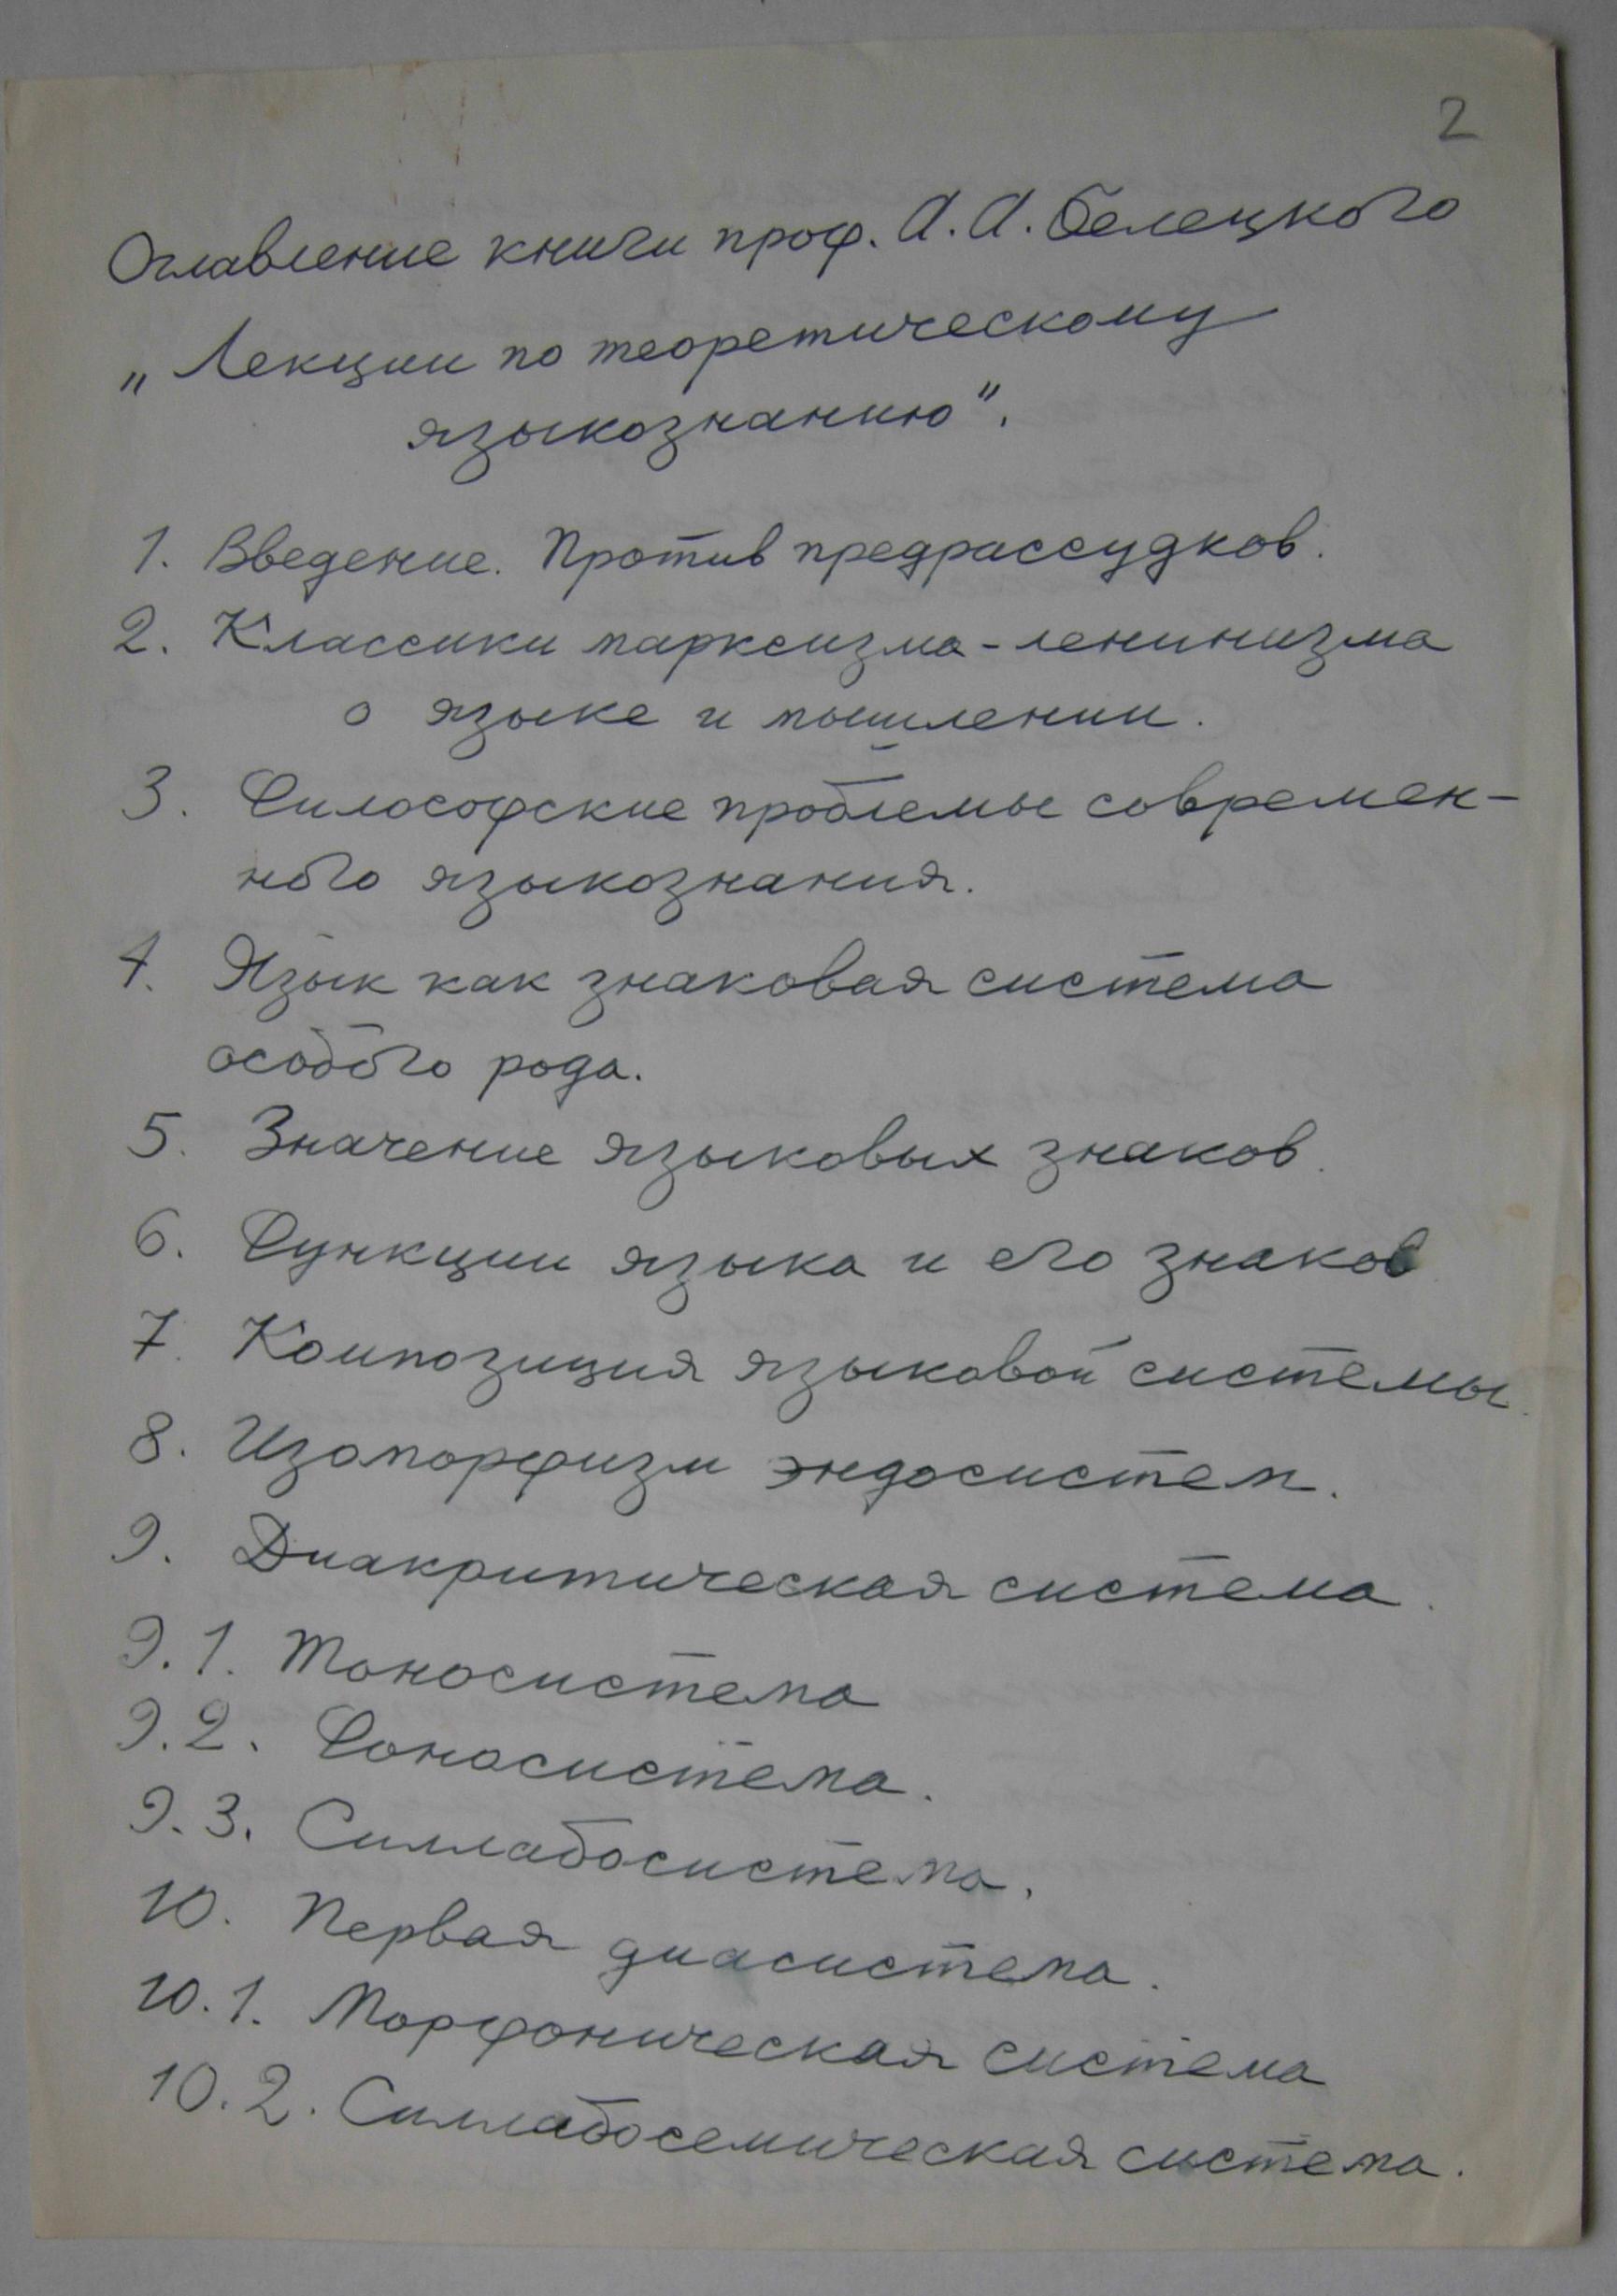 2
Оглавление книги проф. А. А. Белецкого
„Лекции по теоретическому
языкознанию".
1. Введение. Против предрассудков.
2. Классики марксизма-ленинизма
о языке и мышлении.
3. Философские проблемы современ-
ного языкознания.
4. Язык как знаковая система
особого рода.
5. Значение языковых знаков.
6. Функции языка и его знаков
7. Композиция языковой системы.
8. Изоморфизм эндосистем.
9. Диакритическая система.
9.1. Тоносистема
9.2. Фоносистема.
9.3. Силлабосистема.
10. Первая диасистема.
10.1. Морфоническая система
10.2. Силлабосемическая система.